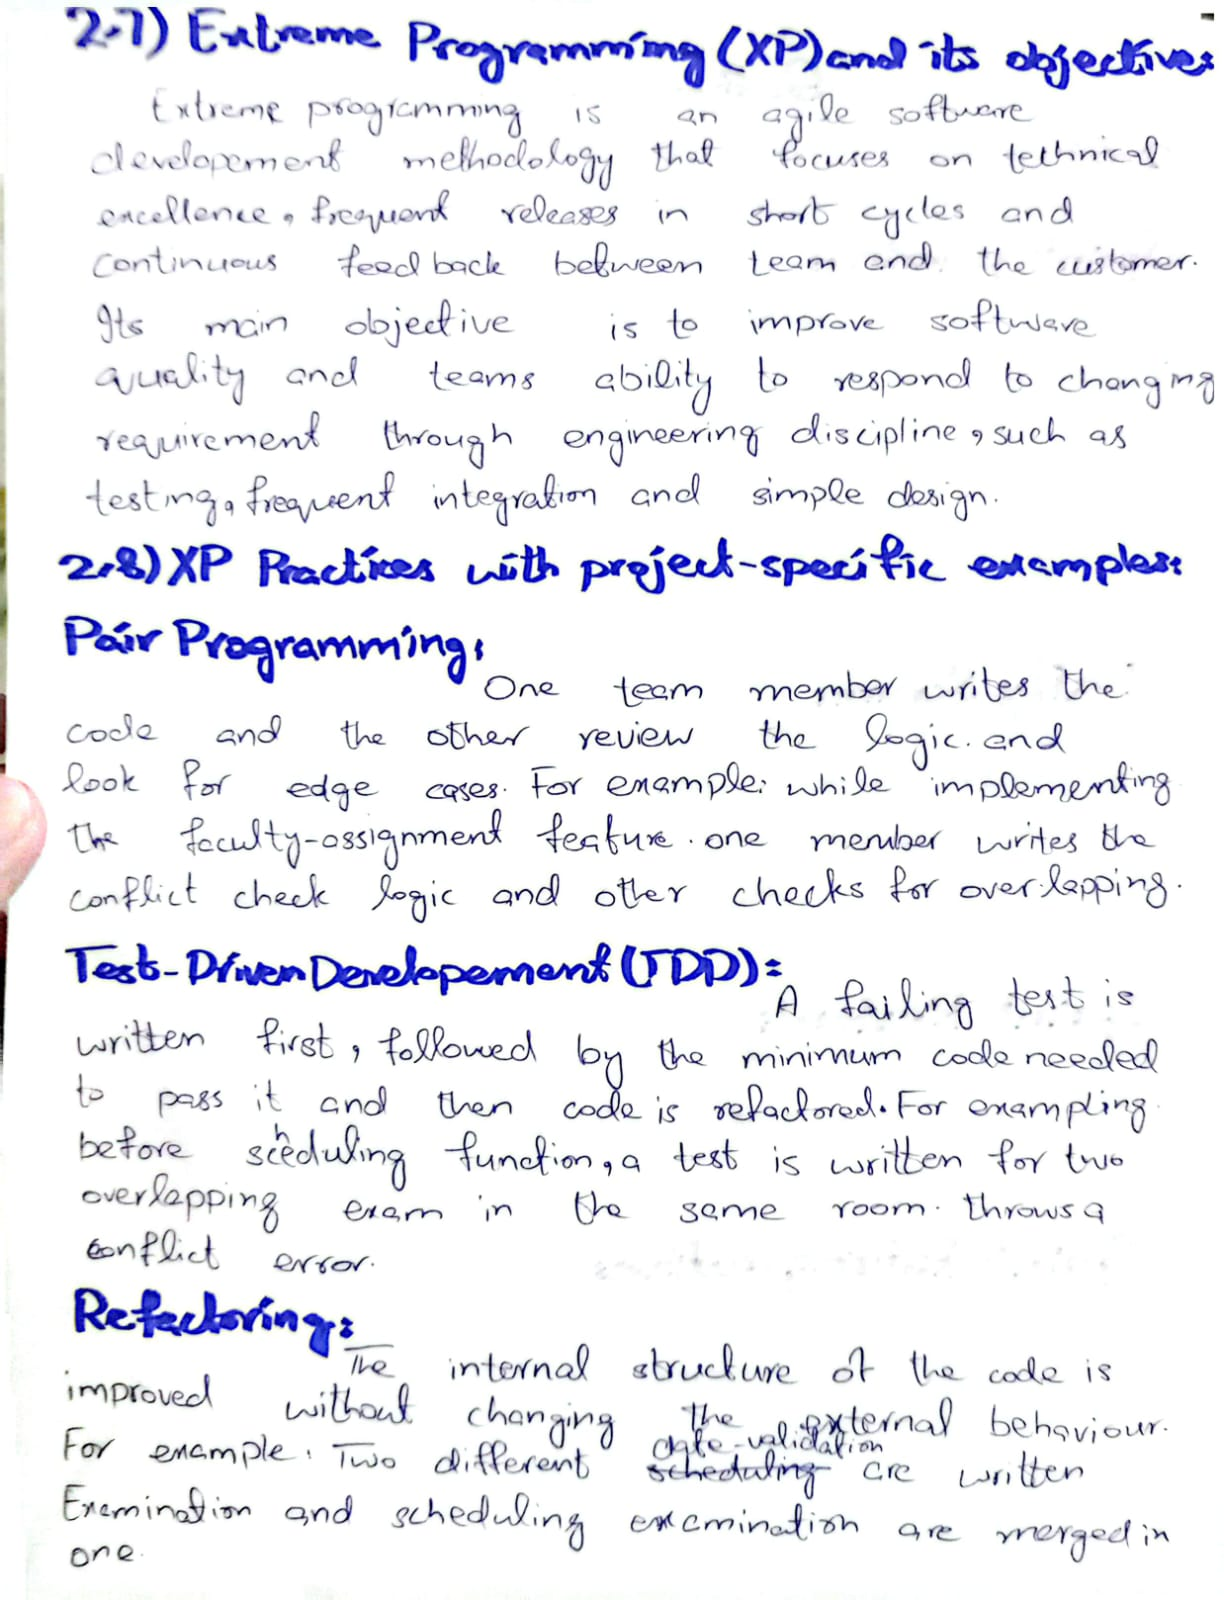 2.7) Extreme Programming (XP) and its objectives:
Extreme programming is an agile software
developement methodology that focuses on technical
excellence, frequent releases in short cycles and
continuous feedback between team and the customer.
Its main objective is to improve software
quality and teams ability to respond to changing
requirement through engineering discipline, such as
testing, frequent integration and simple design.
2.8) XP Practices with project-specific examples:
Pair Programming:
One team member writes the
code and the other review the logic. and
look for edge cases. For example: while implementing
the faculty-assignment feature. one member writes the
conflict check logic and other checks for overlapping.
Test-Driven Developement (TDD):
A failing test is
written first, followed by the minimum code needed
to pass it and then code is refactored. For exampling
before scheduling function, a test is written for two
overlapping exam in the same room. throws a
conflict error.
Refactoring:
The internal structure of the code is
improved without changing the external behaviour.
For example: Two different date-validation are written
Examination and scheduling examination are merged in
one.